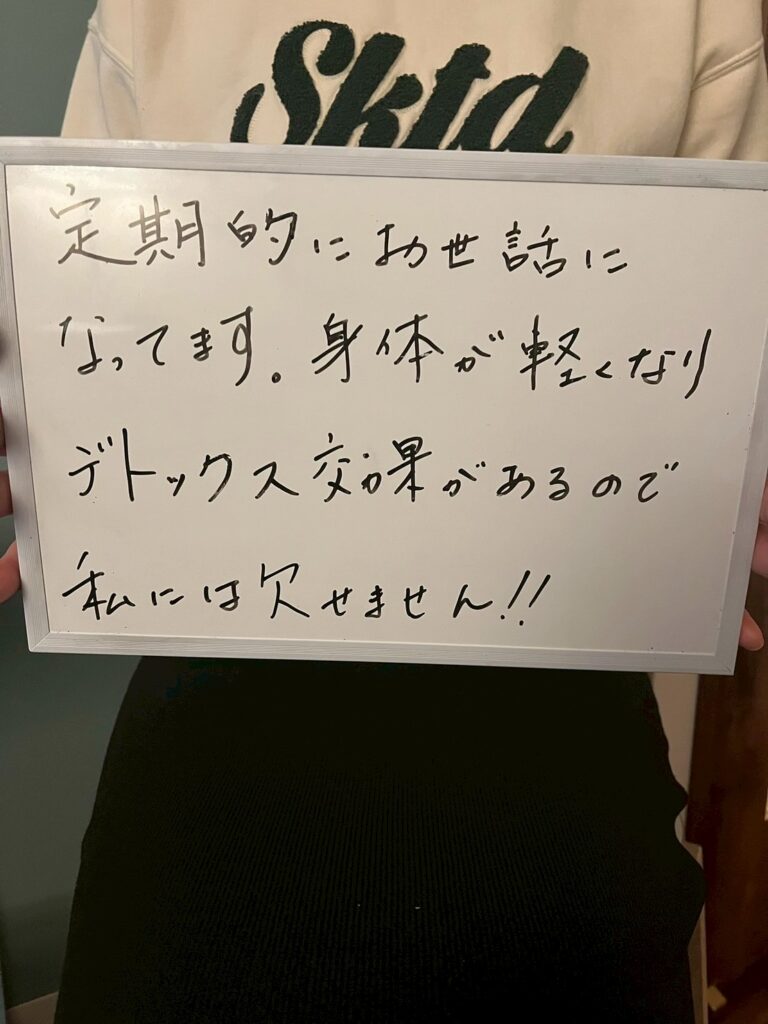 Sktd
定期的にお世話に
なってます。身体が軽くなり
デトックス効果があるので
私には欠せません!!